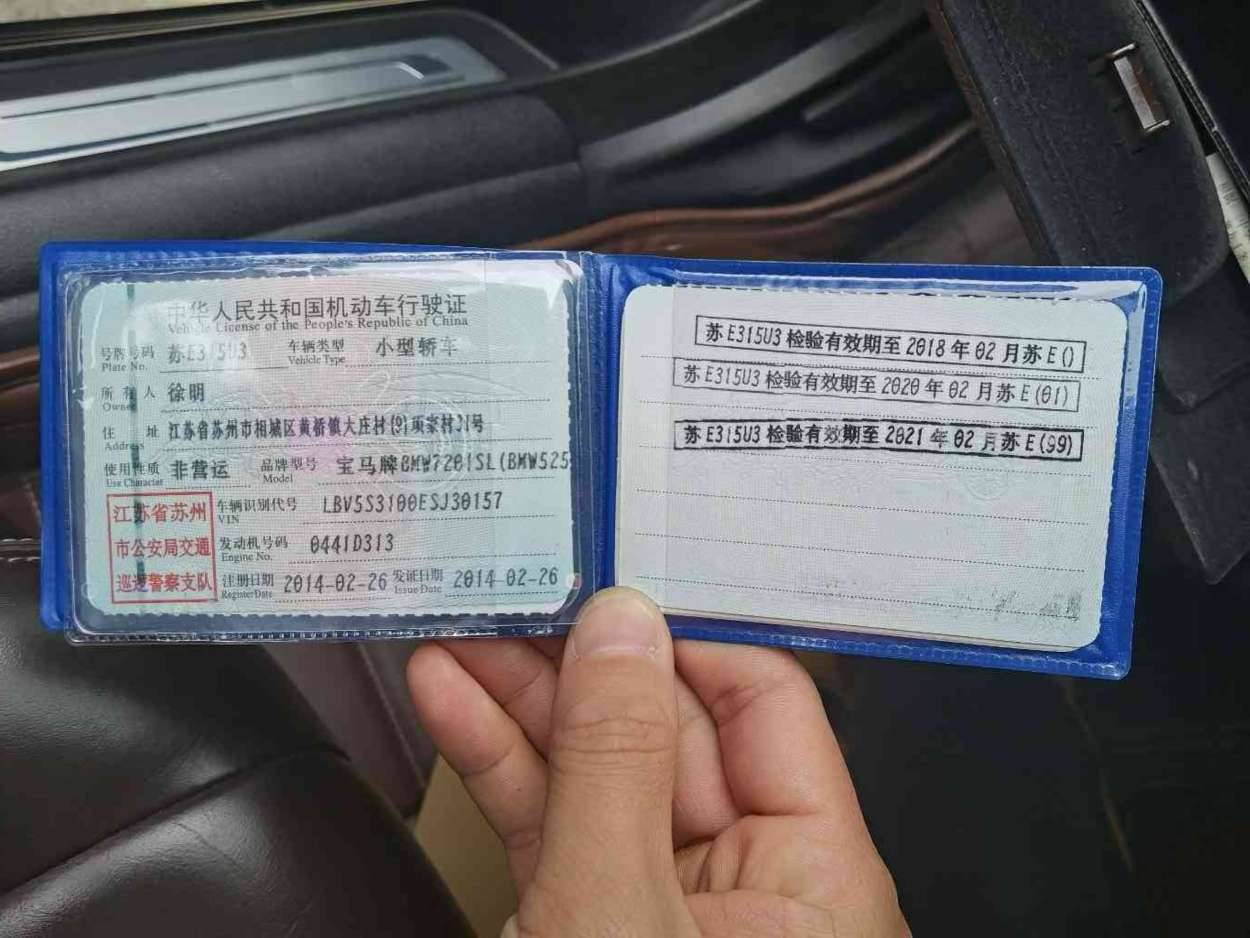 中华人民共和国机动车行驶证
Vehicle License of the People's Republic of China
号牌号码 苏E315U3 车辆类型 小型轿车
Plate No. Vehicle Type
所有人 徐明
Owner
住址 江苏省苏州市相城区黄桥镇大庄村(9)项家村21号
Address
使用性质 非营运 品牌型号 宝马牌BMW7201SL(BMW525
Use Character Model
江苏省苏州 车辆识别代号 LBV5S3100ESJ30157
VIN
市公安局交通 发动机号码 0441D313
Engine No.
巡逻警察支队 注册日期 2014-02-26 发证日期 2014-02-26
Register Date Issue Date
苏E315U3检验有效期至2018年02月苏E()
苏E315U3检验有效期至2020年02月苏E(01)
苏E315U3检验有效期至2021年02月苏E(99)